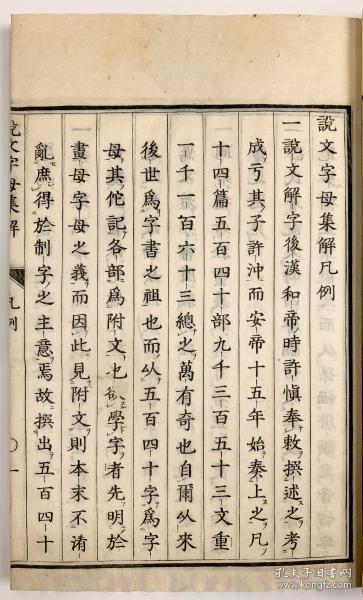 說文字母集解凡例
一說文解字後漢和帝時許愼奉敕撰述之考
成亏其子許沖而安帝十五年始奏上之凡
十四篇五百四十部九千三百五十三文重
一千一百六十三總之萬有奇也自爾以來
後世爲字書之祖也而以五百四十字爲字
母其佗記各部爲附文也學字者先明於
畫母字母之義而因此見附文則本末不淆
亂庶得於制字之主意焉故撰出五百四十
說文字母集解 凡例 一
孔夫子旧书网